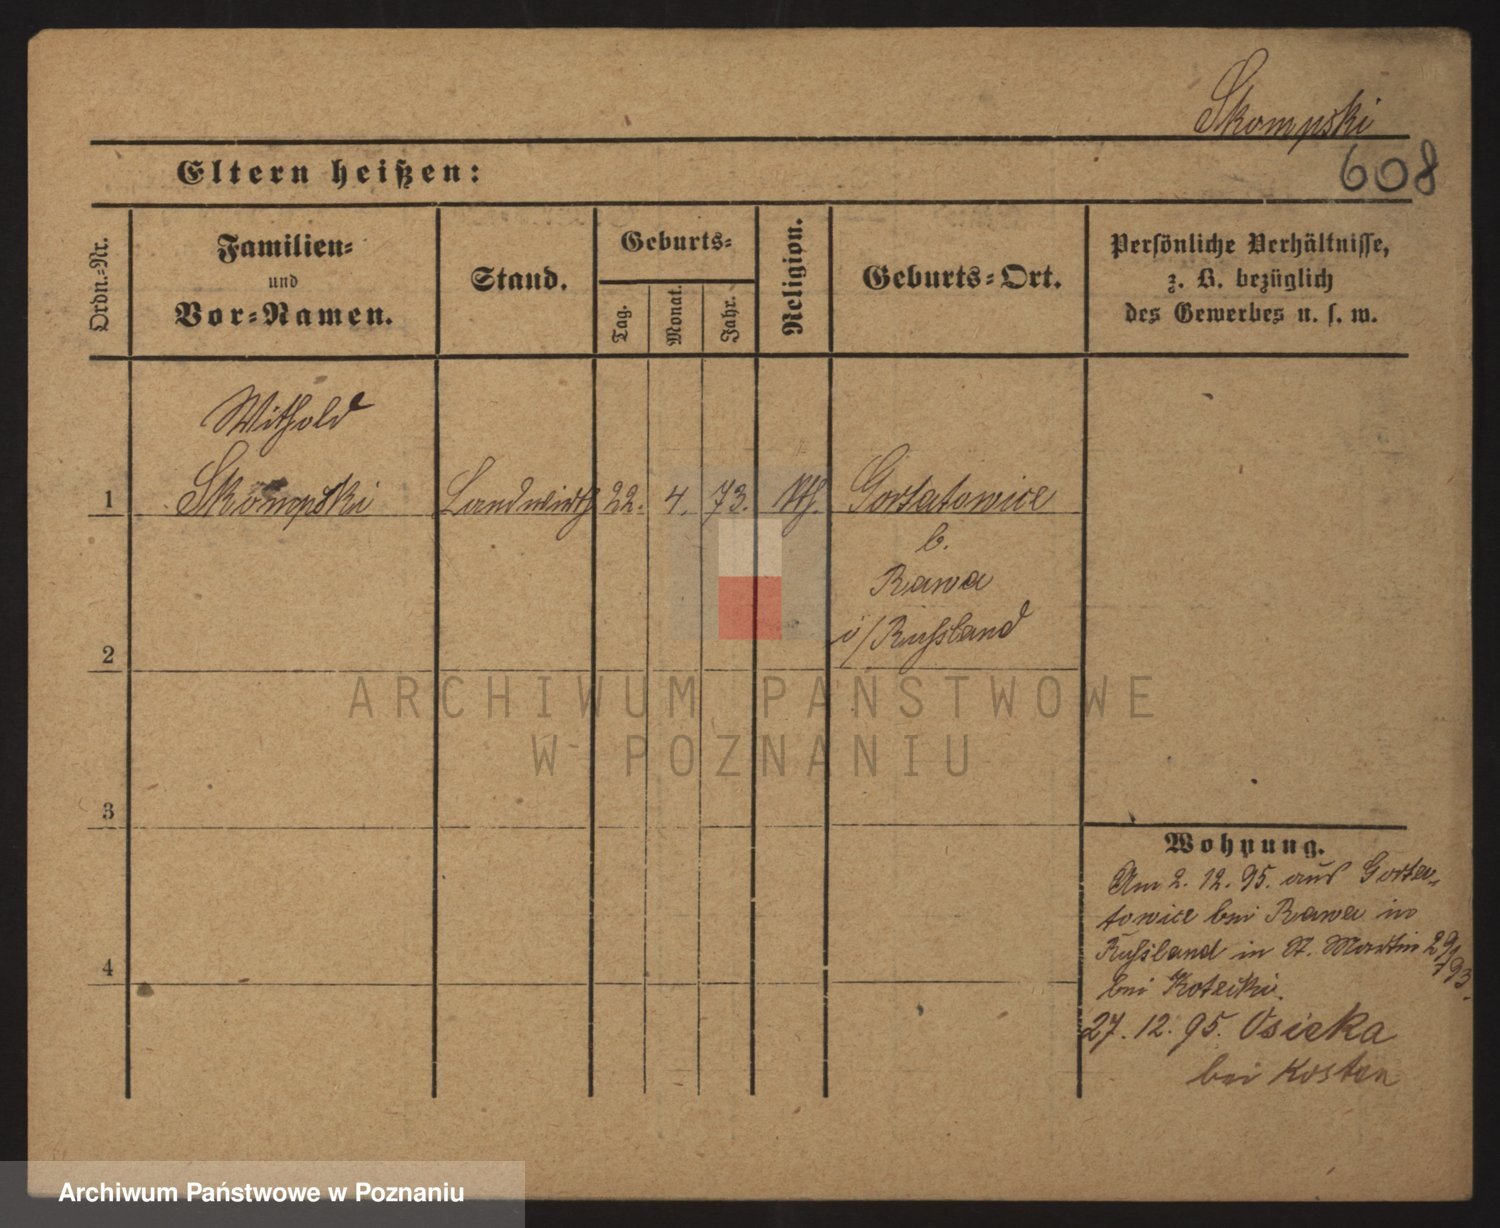 Skompski
608
Eltern heißen:
Ordn.-Nr.
Familien-
und
Vor-Namen.
Stand.
Geburts-
Tag.
Monat.
Jahr.
Religion.
Geburts-Ort.
Persönliche Verhältnisse,
z. B. bezüglich
des Gewerbes u. s. w.
Withold
1 Skompski Landwirth 22. 4. 73. kth. Gortatowice
b.
Rawa
i/Russland
2
3
4
Wohnung.
Am 2. 12. 95. aus Gorta-
towice bei Rawa in
Russland in St. Martin
bei Kotecki.
27. 12. 95. Osieka
bei Kosten
ARCHIWUM PAŃSTWOWE
W POZNANIU
Archiwum Państwowe w Poznaniu